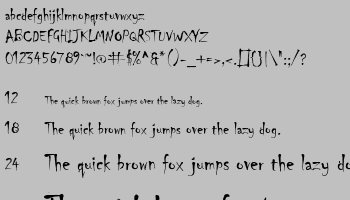 abcdefghijklmnopqrstuvwxyz
ABCDEFGHIJKLMNOPQRSTUVWXYZ
0123456789`~!@#$%^&*()-_+=>,<.[]{}|\":;/?
12 The quick brown fox jumps over the lazy dog.
18 The quick brown fox jumps over the lazy dog.
24 The quick brown fox jumps over the lazy do